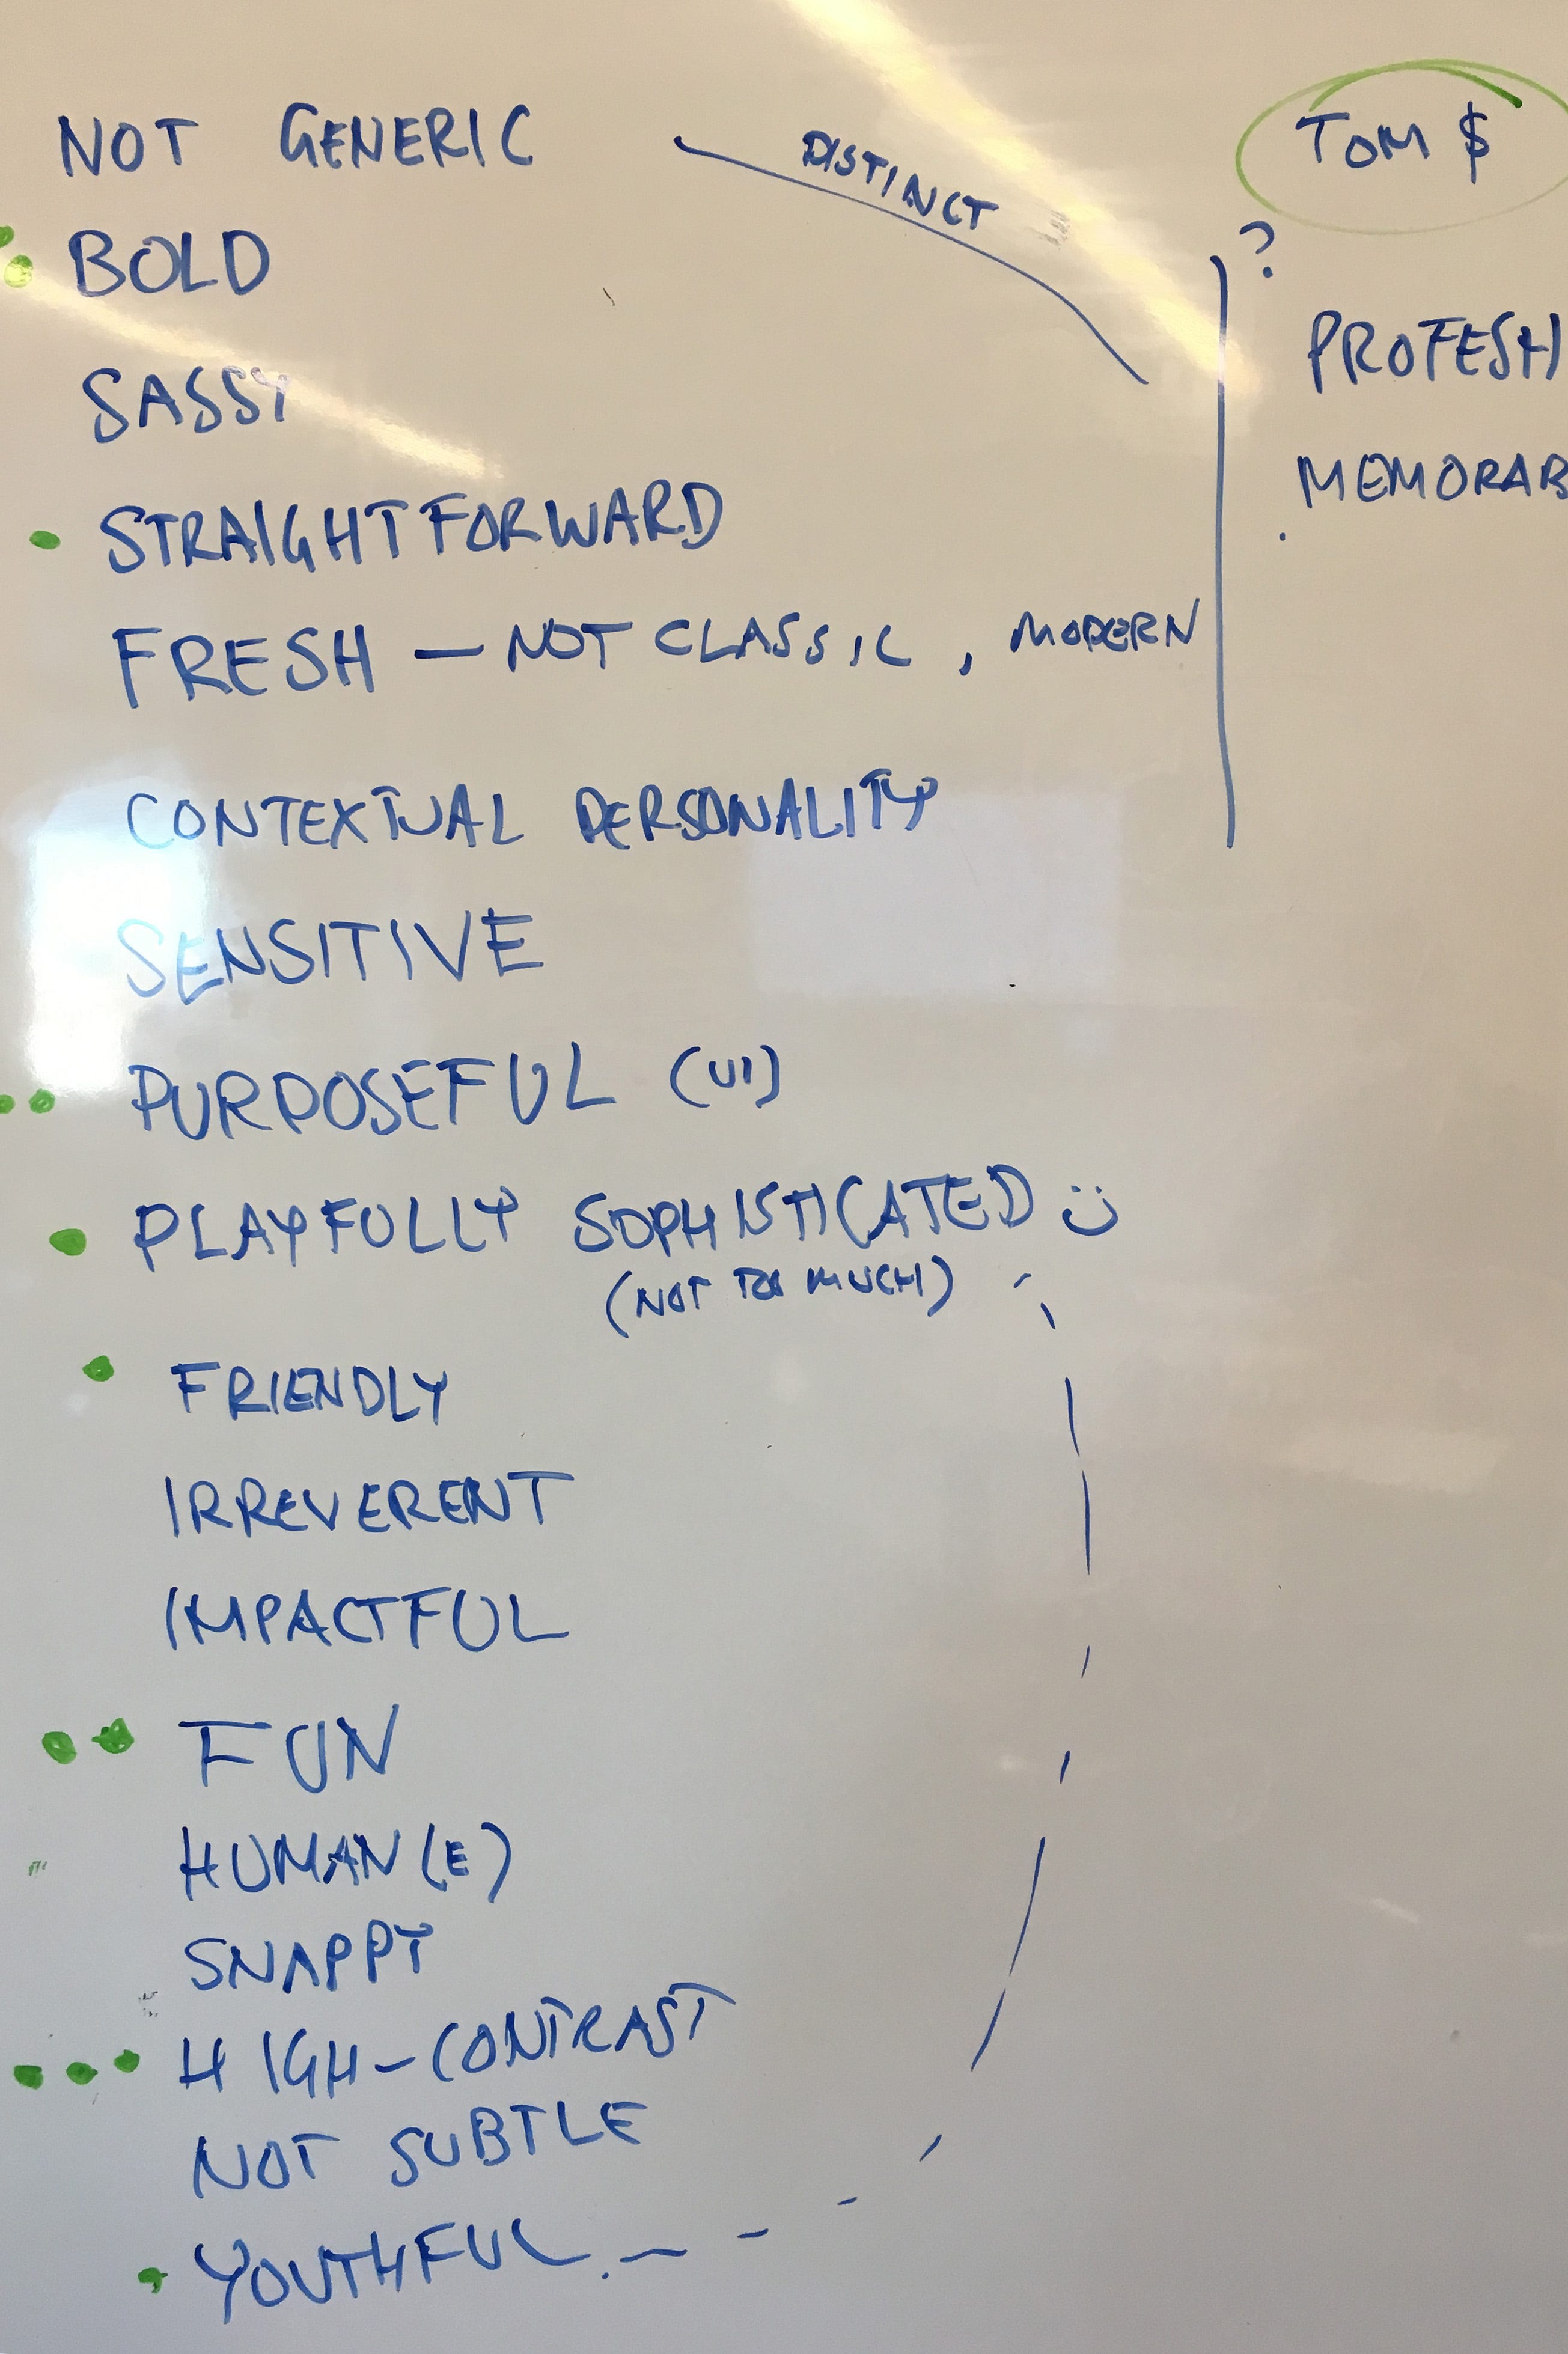 NOT GENERIC
DISTINCT
BOLD
SASSY
STRAIGHTFORWARD
FRESH — NOT CLASSIC, MODERN
CONTEXTUAL PERSONALITY
SENSITIVE
PURPOSEFUL (UI)
PLAYFULLY SOPHISTICATED
(NOT TOO MUCH)
FRIENDLY
IRREVERENT
IMPACTFUL
FUN
HUMAN(E)
SNAPPY
HIGH-CONTRAST
NOT SUBTLE
YOUTHFUL
TOM $
?
PROFESH
MEMORAB